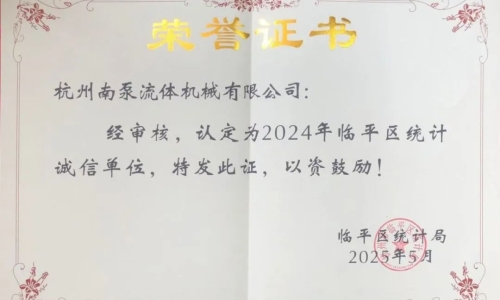 荣誉证书
杭州南泵流体机械有限公司：
经审核，认定为2024年临平区统计
诚信单位，特发此证，以资鼓励！
临平区统计局
2025年5月